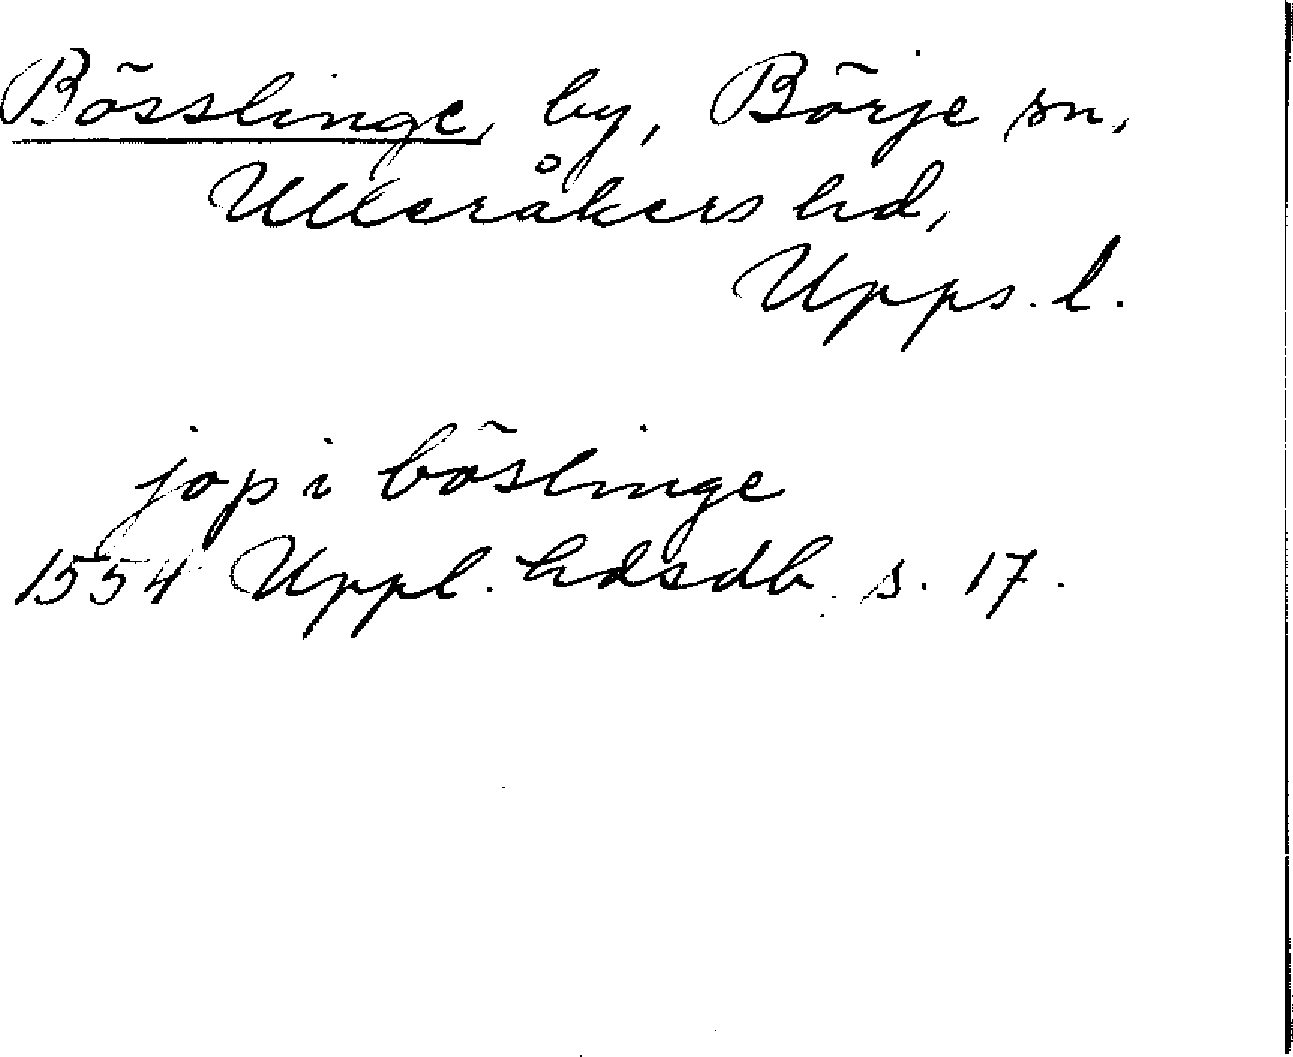 Bösslinge, by, Börje sn,
Ulleråkers hd,
Upps. l.
jop i böslinge
1554 Uppl. hdsdb s. 17.